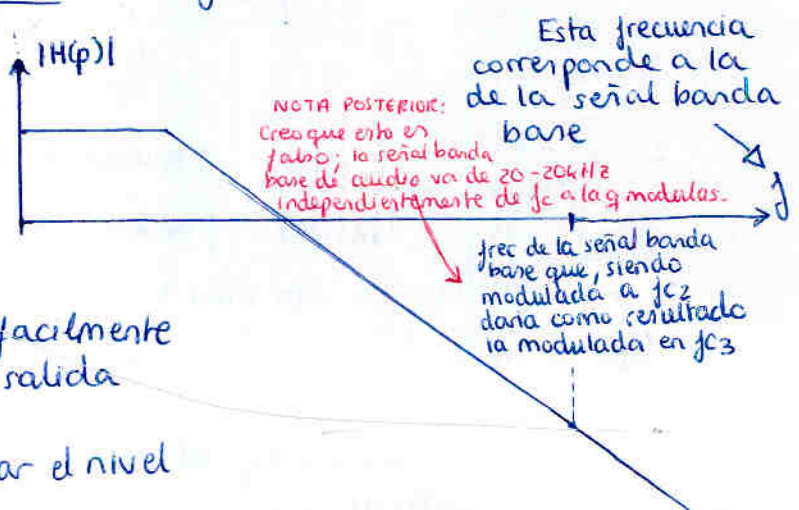 |H(p)|
Esta frecuencia
corresponde a la
de la señal banda
base
f
NOTA POSTERIOR:
Creo que esto es
falso; la señal banda
base de audio va de 20-20kHz
independientemente de fc a la q modulas.
frec de la señal banda
base que, siendo
modulada a fc2
daria como resultado
la modulada en fc3
facilmente
salida
ar el nivel